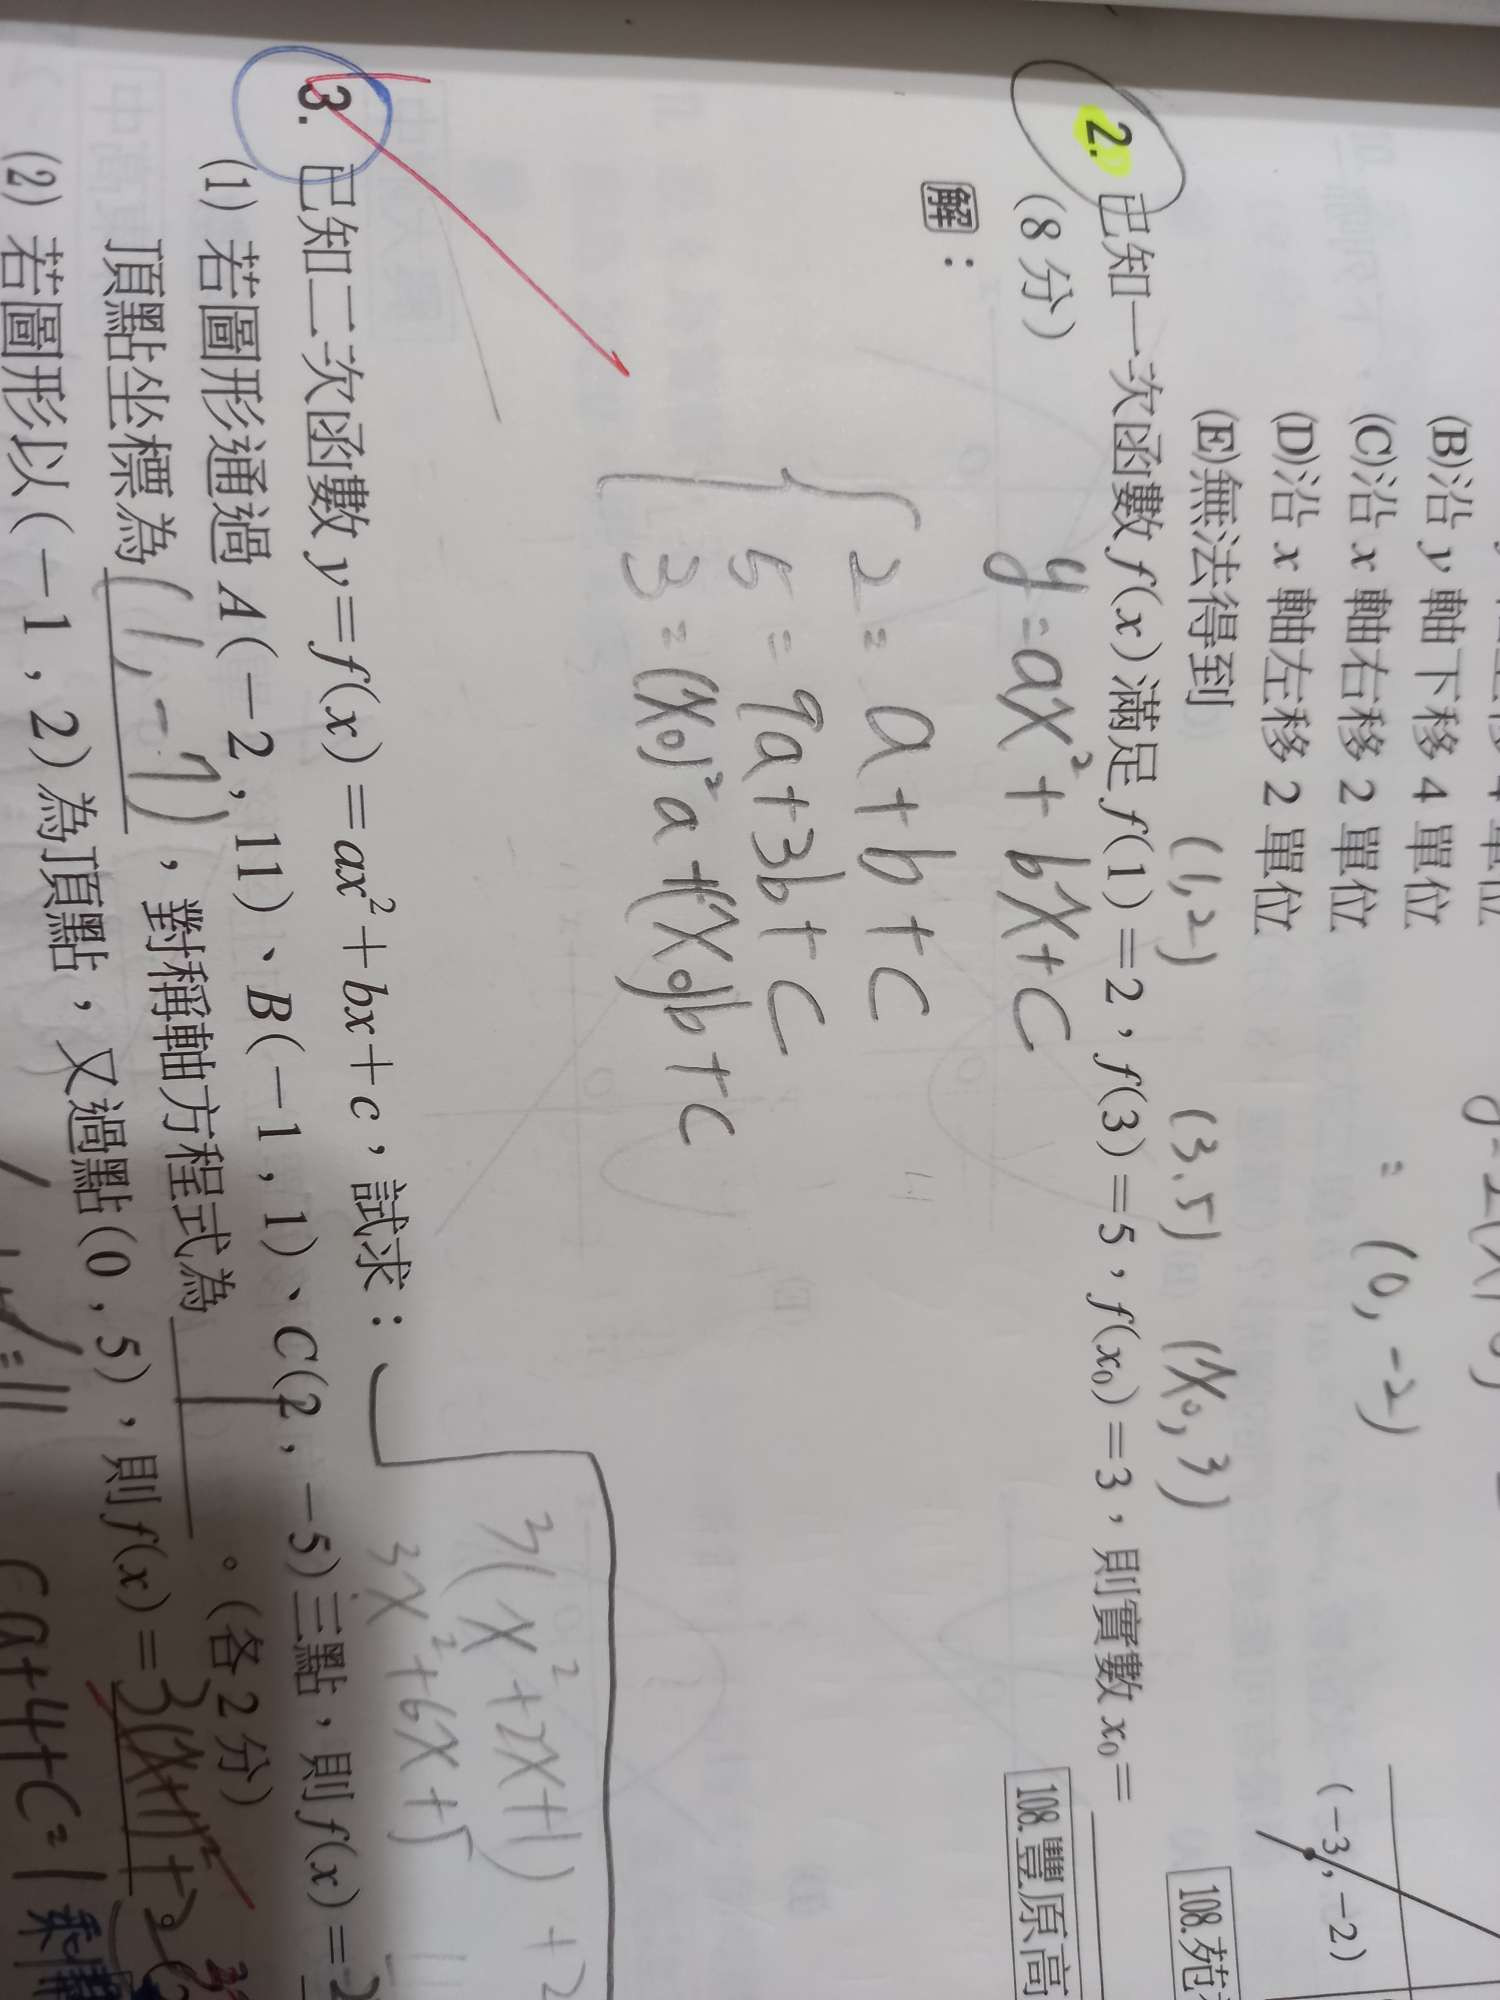 (B)沿 y 軸下移 4 單位
(C)沿 x 軸右移 2 單位
(D)沿 x 軸左移 2 單位
(E)無法得到
(0, -2)
(-3, -2)
108.苑
(1, 2) (3, 5) (x₀, 3)
2. 已知一次函數 f(x) 滿足 f(1)=2, f(3)=5, f(x₀)=3,則實數 x₀=
(8 分)
108.豐原高
解:
y=ax²+bx+c
2=a+b+c
5=9a+3b+c
3=(x₀)²a+(x₀)b+c
3(x²+2x+1)+2
3x²+6x+5
3. 已知二次函數 y=f(x)=ax²+bx+c,試求:
(1) 若圖形通過 A(-2, 11)、B(-1, 1)、C(2, -5)三點,則 f(x)=2
頂點坐標為(1, -7),對稱軸方程式為。(各 2 分)
(2) 若圖形以(-1, 2)為頂點,又過點(0, 5),則 f(x)=3(x+1)²+2